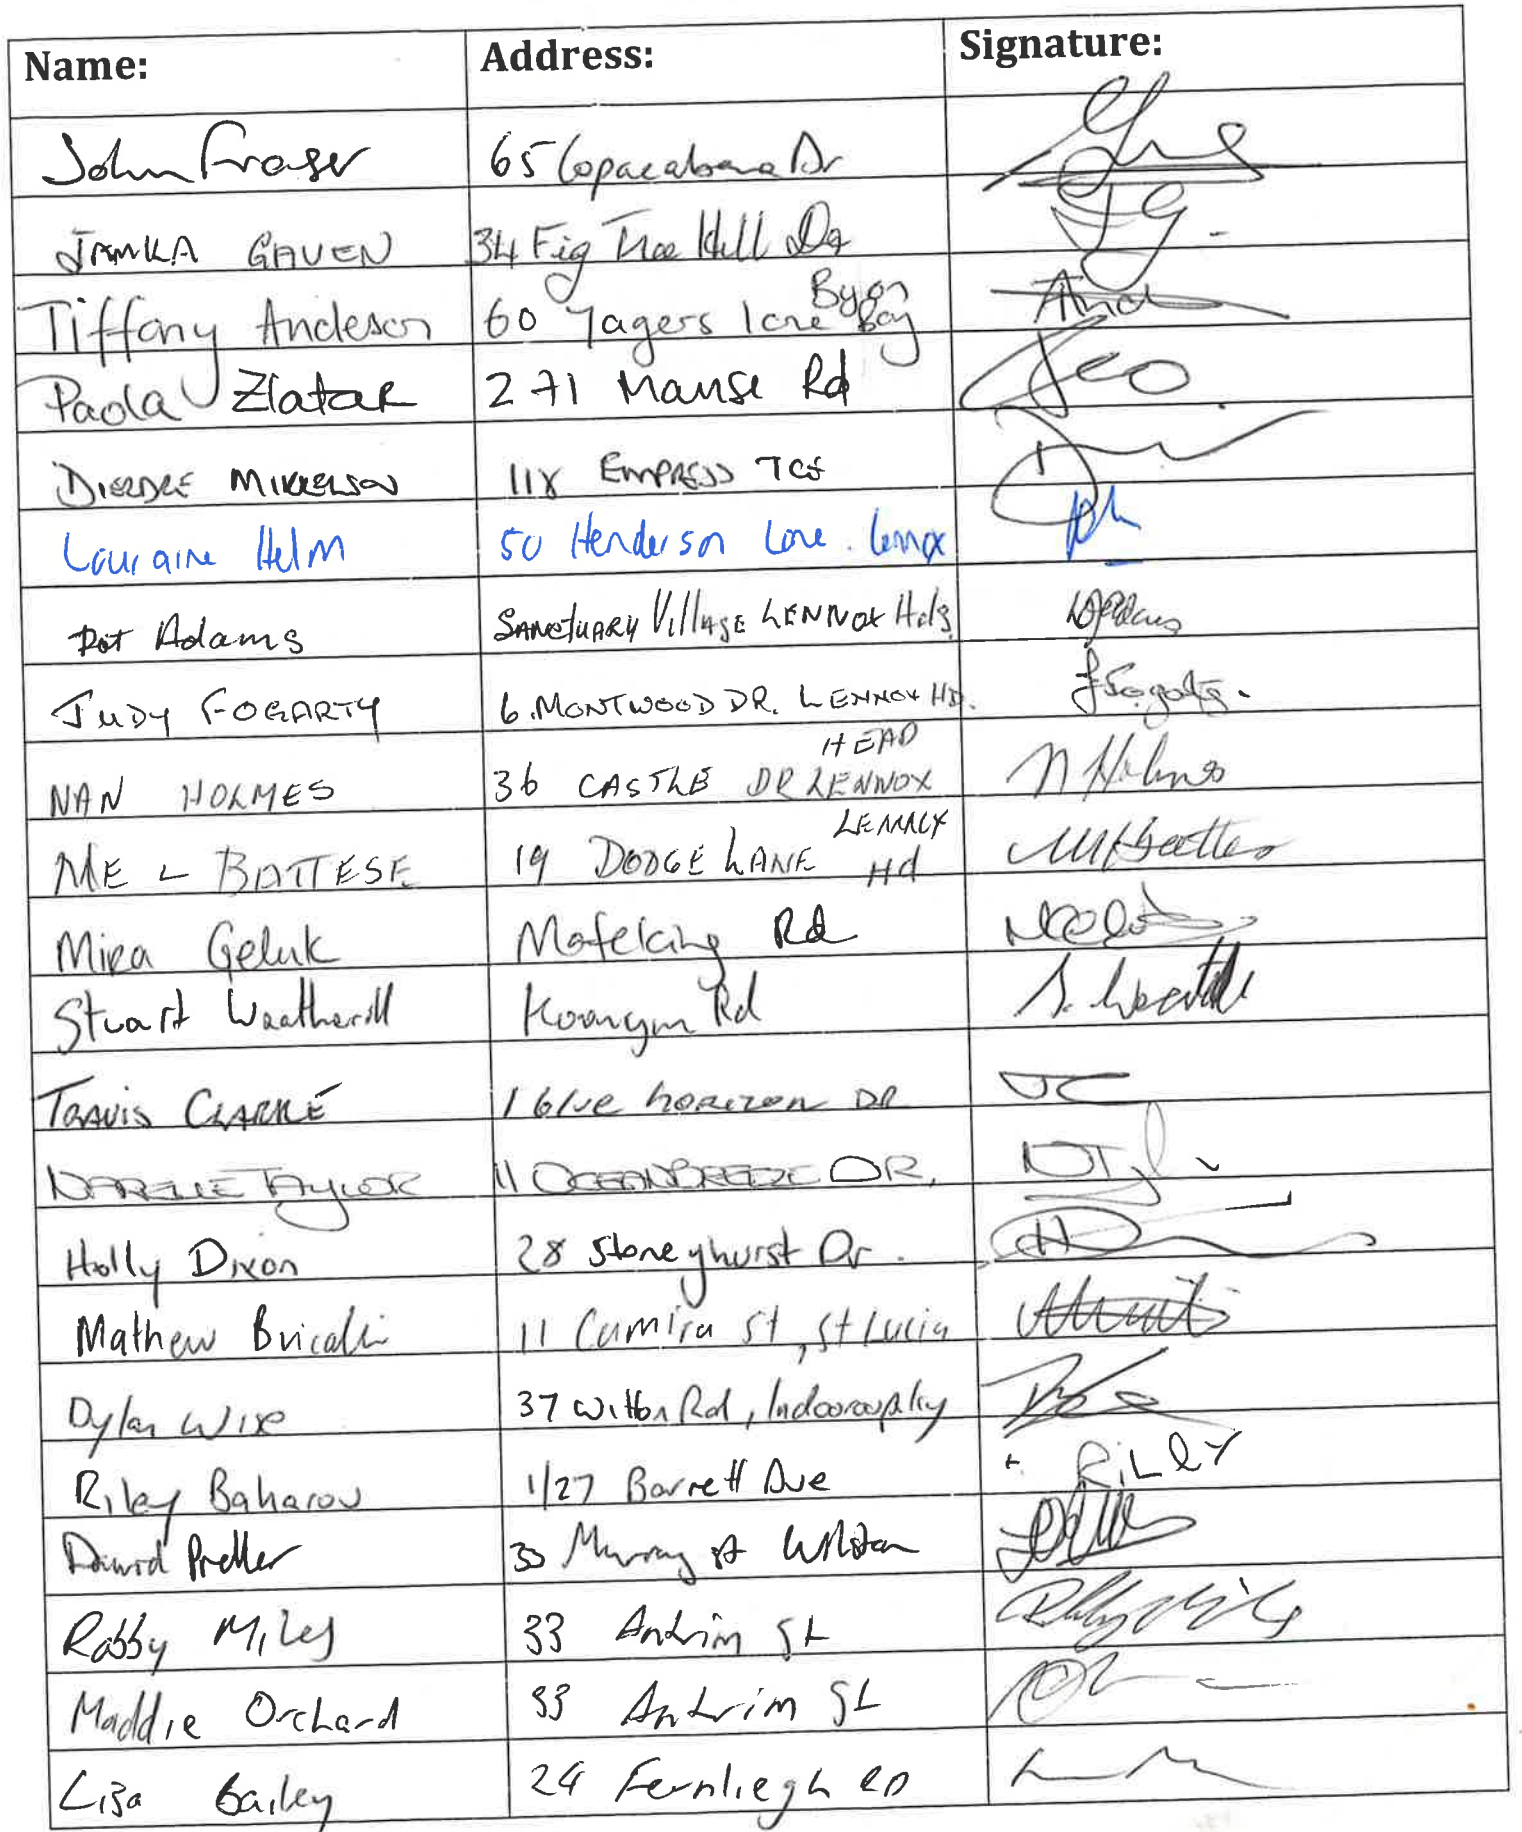 Name: Address: Signature:
John Fraser 65 Copacabana Dr
JAMKA GAVEN 34 Fig Tree Hill Dr
Tiffany Anderson 60 Yagers lane Byron Bay
Paola Zlatar 271 Manse Rd
DIERDRE MIKKELSON 118 EMPRESS TCE
Louraine Helm 50 Henderson Lane. Lennox
Pat Adams SANCTUARY VillAGE LENNOX Hds.
JUDY FOGARTY 6. MONTWOOD DR. LENNOX HD. J Fogarty.
NAN HOLMES 36 CASTLE DR LENNOX HEAD N Holmes
MEL BATTESE 19 DODGE LANE LENNOX Hd
Mira Geluk Mafeking Rd
Stuart Weatherill Koonyum Rd
TRAVIS CLARKE 1 blue horizon DR TC
NARELLE TAYLOR 11 OCEANBREEZE DR.
Holly Dixon 28 Stoneyhurst Dr.
Mathew 11 Camira St, St Lucia
Dylan Wise 37 Witton Rd, Indooroopilly
Riley Baharov 1/27 Barrett Ave RiLEY
David Preller 30 Murray st Wilston
Robby Miles 33 Antrim St
Maddie Orchard 33 Antrim St
Lisa Bailey 24 Fernliegh RD